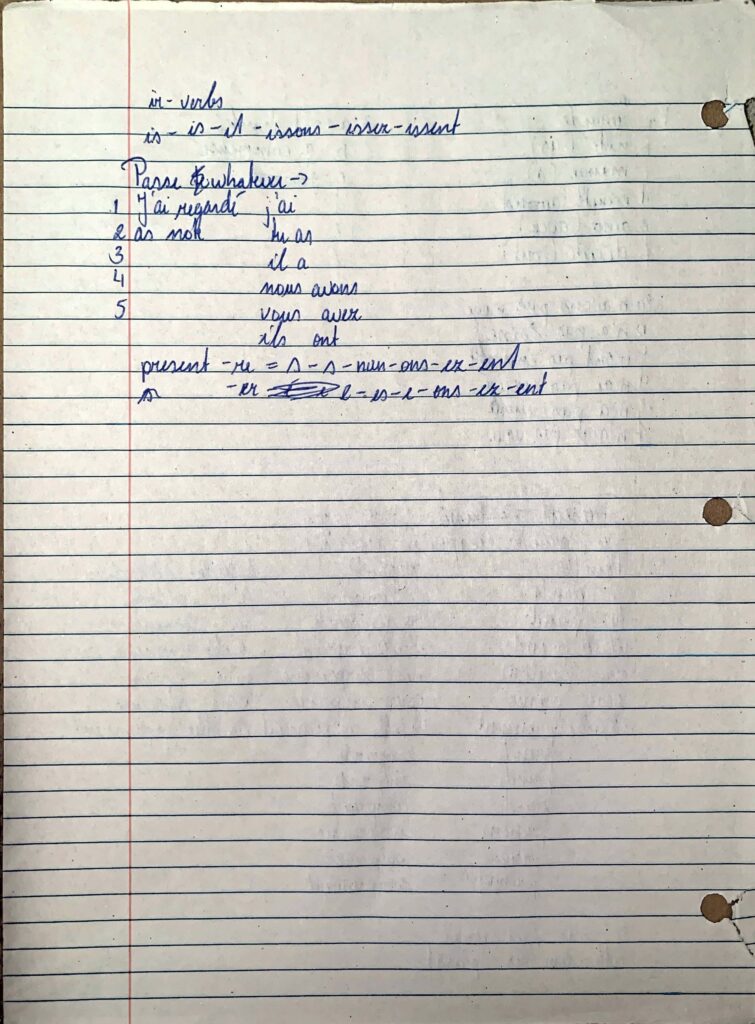 ir- verbs
is- is- it -issons -issez -issent
Passe whatever ->
1 J'ai regardé j'ai
2 as tu as
3 il a
4 nous avons
5 vous avez
ils ont
present -re = s - s - nun - ons - ez - ent
s -er e - es - e - ons - ez - ent